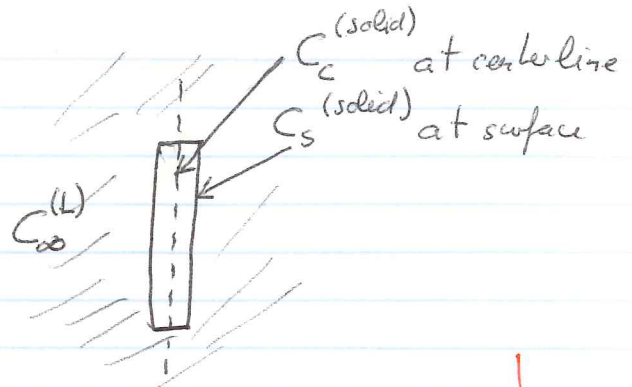 C_c^(solid) at centerline
C_s^(solid) at surface
C_∞^(L)